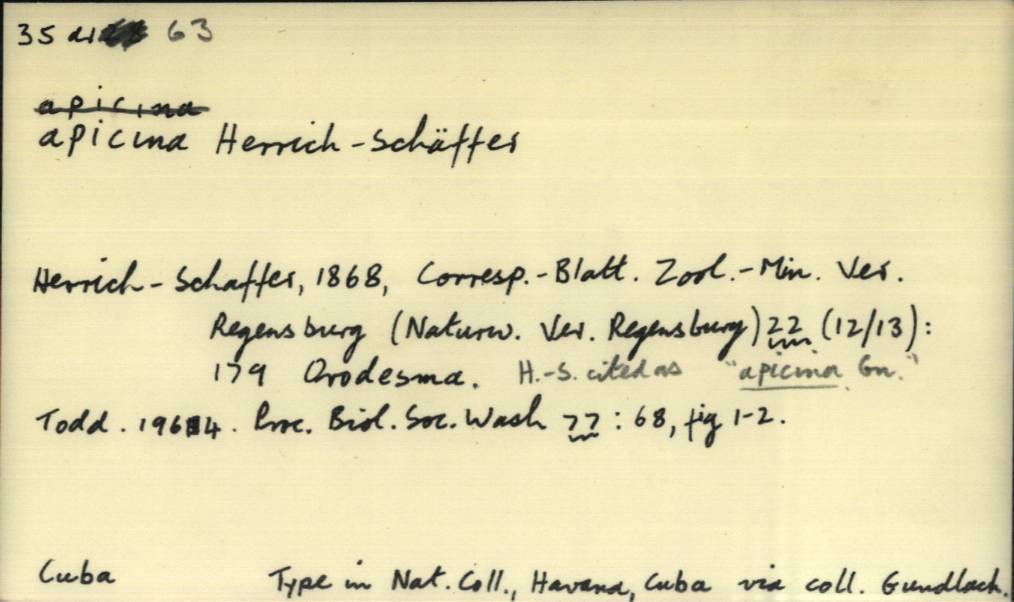 35 63
apicina
apicina Herrich-Schäffer
Herrich-Schaffer, 1868, Corresp.-Blatt. Zool.-Min. Ver.
Regensburg (Naturw. Ver. Regensburg) 22 (12/13):
179 Orodesma. H.-S. cited as "apicina Gn."
Todd. 1964. Proc. Biol. Soc. Wash 77: 68, fig 1-2.
Cuba Type in Nat. Coll., Havana, Cuba via coll. Gundlach.